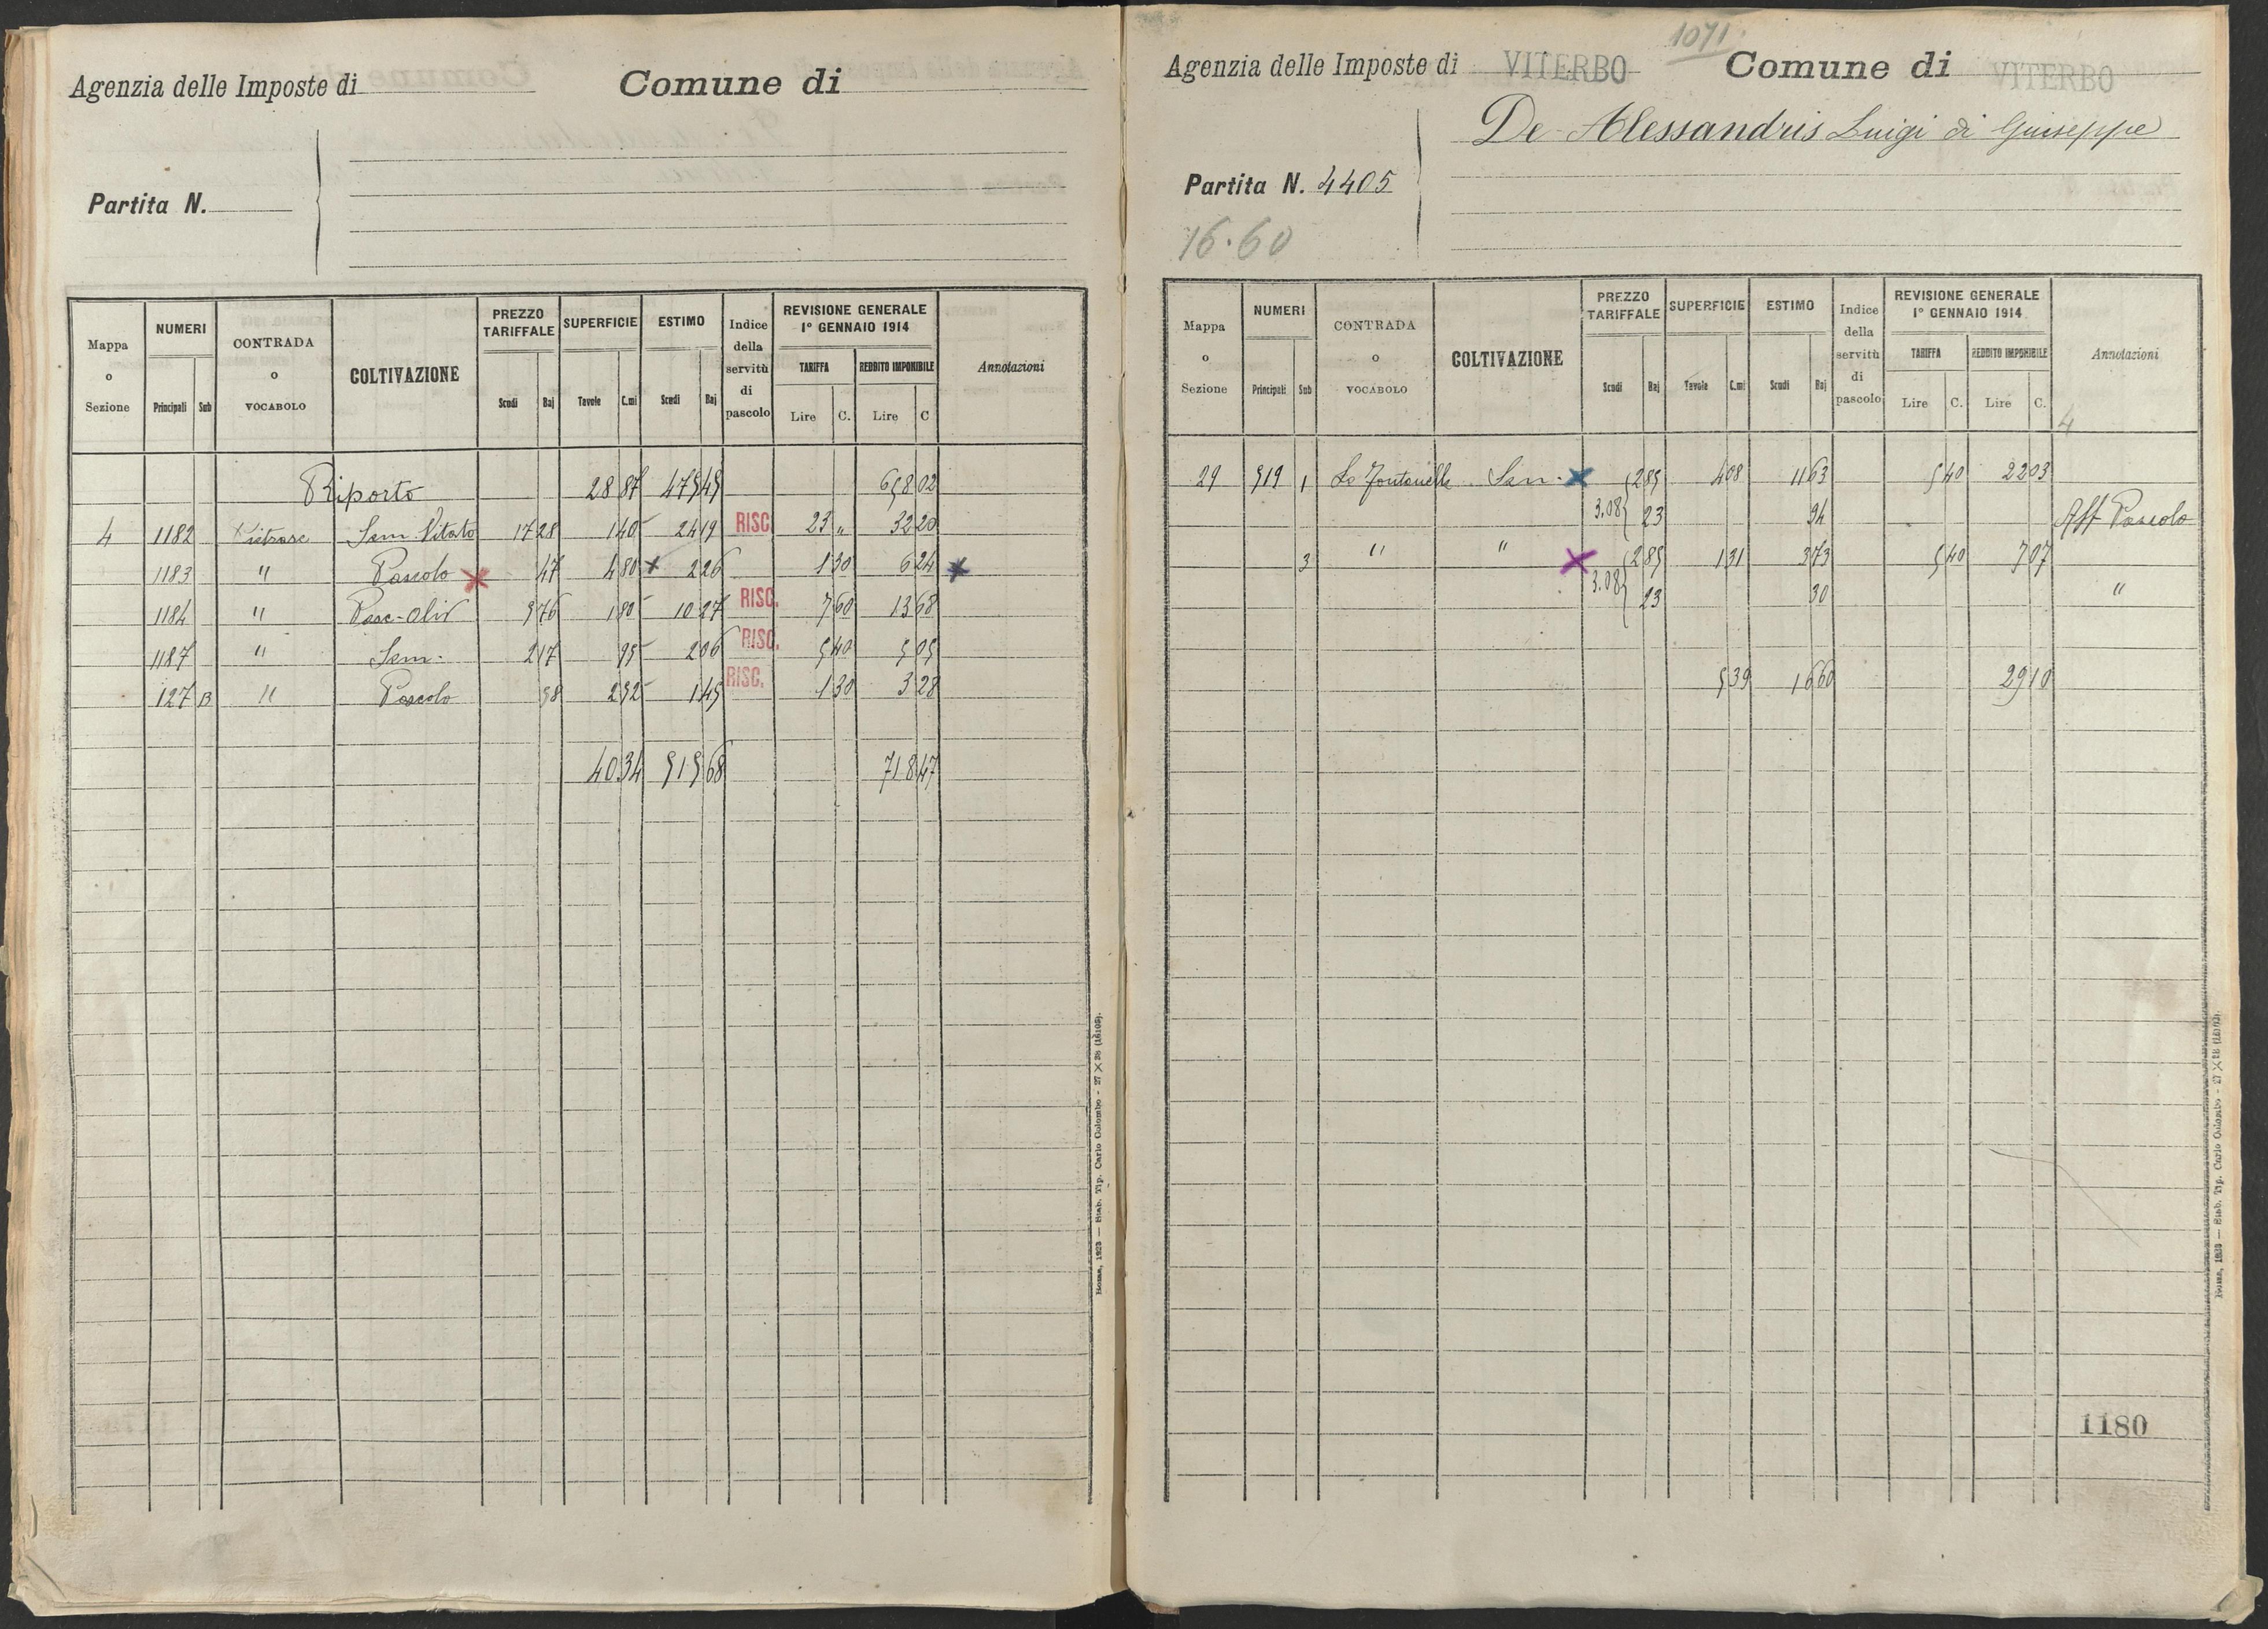 Agenzia delle Imposte di
Comune di
Partita N.
Mappa o Sezione | NUMERI Principali Sub | CONTRADA o VOCABOLO | COLTIVAZIONE | PREZZO TARIFFALE Scudi Baj | SUPERFICIE Tavole C.mi | ESTIMO Scudi Baj | Indice della servitù di pascolo | REVISIONE GENERALE 1° GENNAIO 1914 TARIFFA Lire C. REDDITO IMPONIBILE Lire C | Annotazioni
Riporto 28 87 475 49 658 02
4 1182 Pietrare Sem. Vitato 17 28 1 40 24 19 RISC. 23 „ 32 20
1183 " Pascolo × 47 4 80 × 2 26 1 30 6 24 ×
1184 " Pasc-Oliv 5 76 1 80 10 27 RISC. 7 60 13 68
1187 " Sem. 2 17 95 2 06 RISC. 5 40 5 05
127 B " Pascolo 58 2 52 1 45 RISC. 1 30 3 28
40 34 515 68 718 47
Roma, 1923 — Stab. Tip. Carlo Colombo - 27 × 38
1071
Agenzia delle Imposte di VITERBO Comune di VITERBO
De Alessandris Luigi di Giuseppe
Partita N. 4405
16.60
Mappa o Sezione | NUMERI Principali Sub | CONTRADA o VOCABOLO | COLTIVAZIONE | PREZZO TARIFFALE Scudi Baj | SUPERFICIE Tavole C.mi | ESTIMO Scudi Baj | Indice della servitù di pascolo | REVISIONE GENERALE 1° GENNAIO 1914 TARIFFA Lire C. REDDITO IMPONIBILE Lire C. | Annotazioni
4
29 519 1 Le Fontanelle Sem. × 2 85 4 08 11 63 5 40 22 03
3.08 23 94 Aff Pascolo
3 " " × 2 85 1 31 3 73 5 40 7 07
3.08 23 30 "
5 39 16 60 29 10
1180
Roma, 1923 — Stab. Tip. Carlo Colombo - 27 × 38